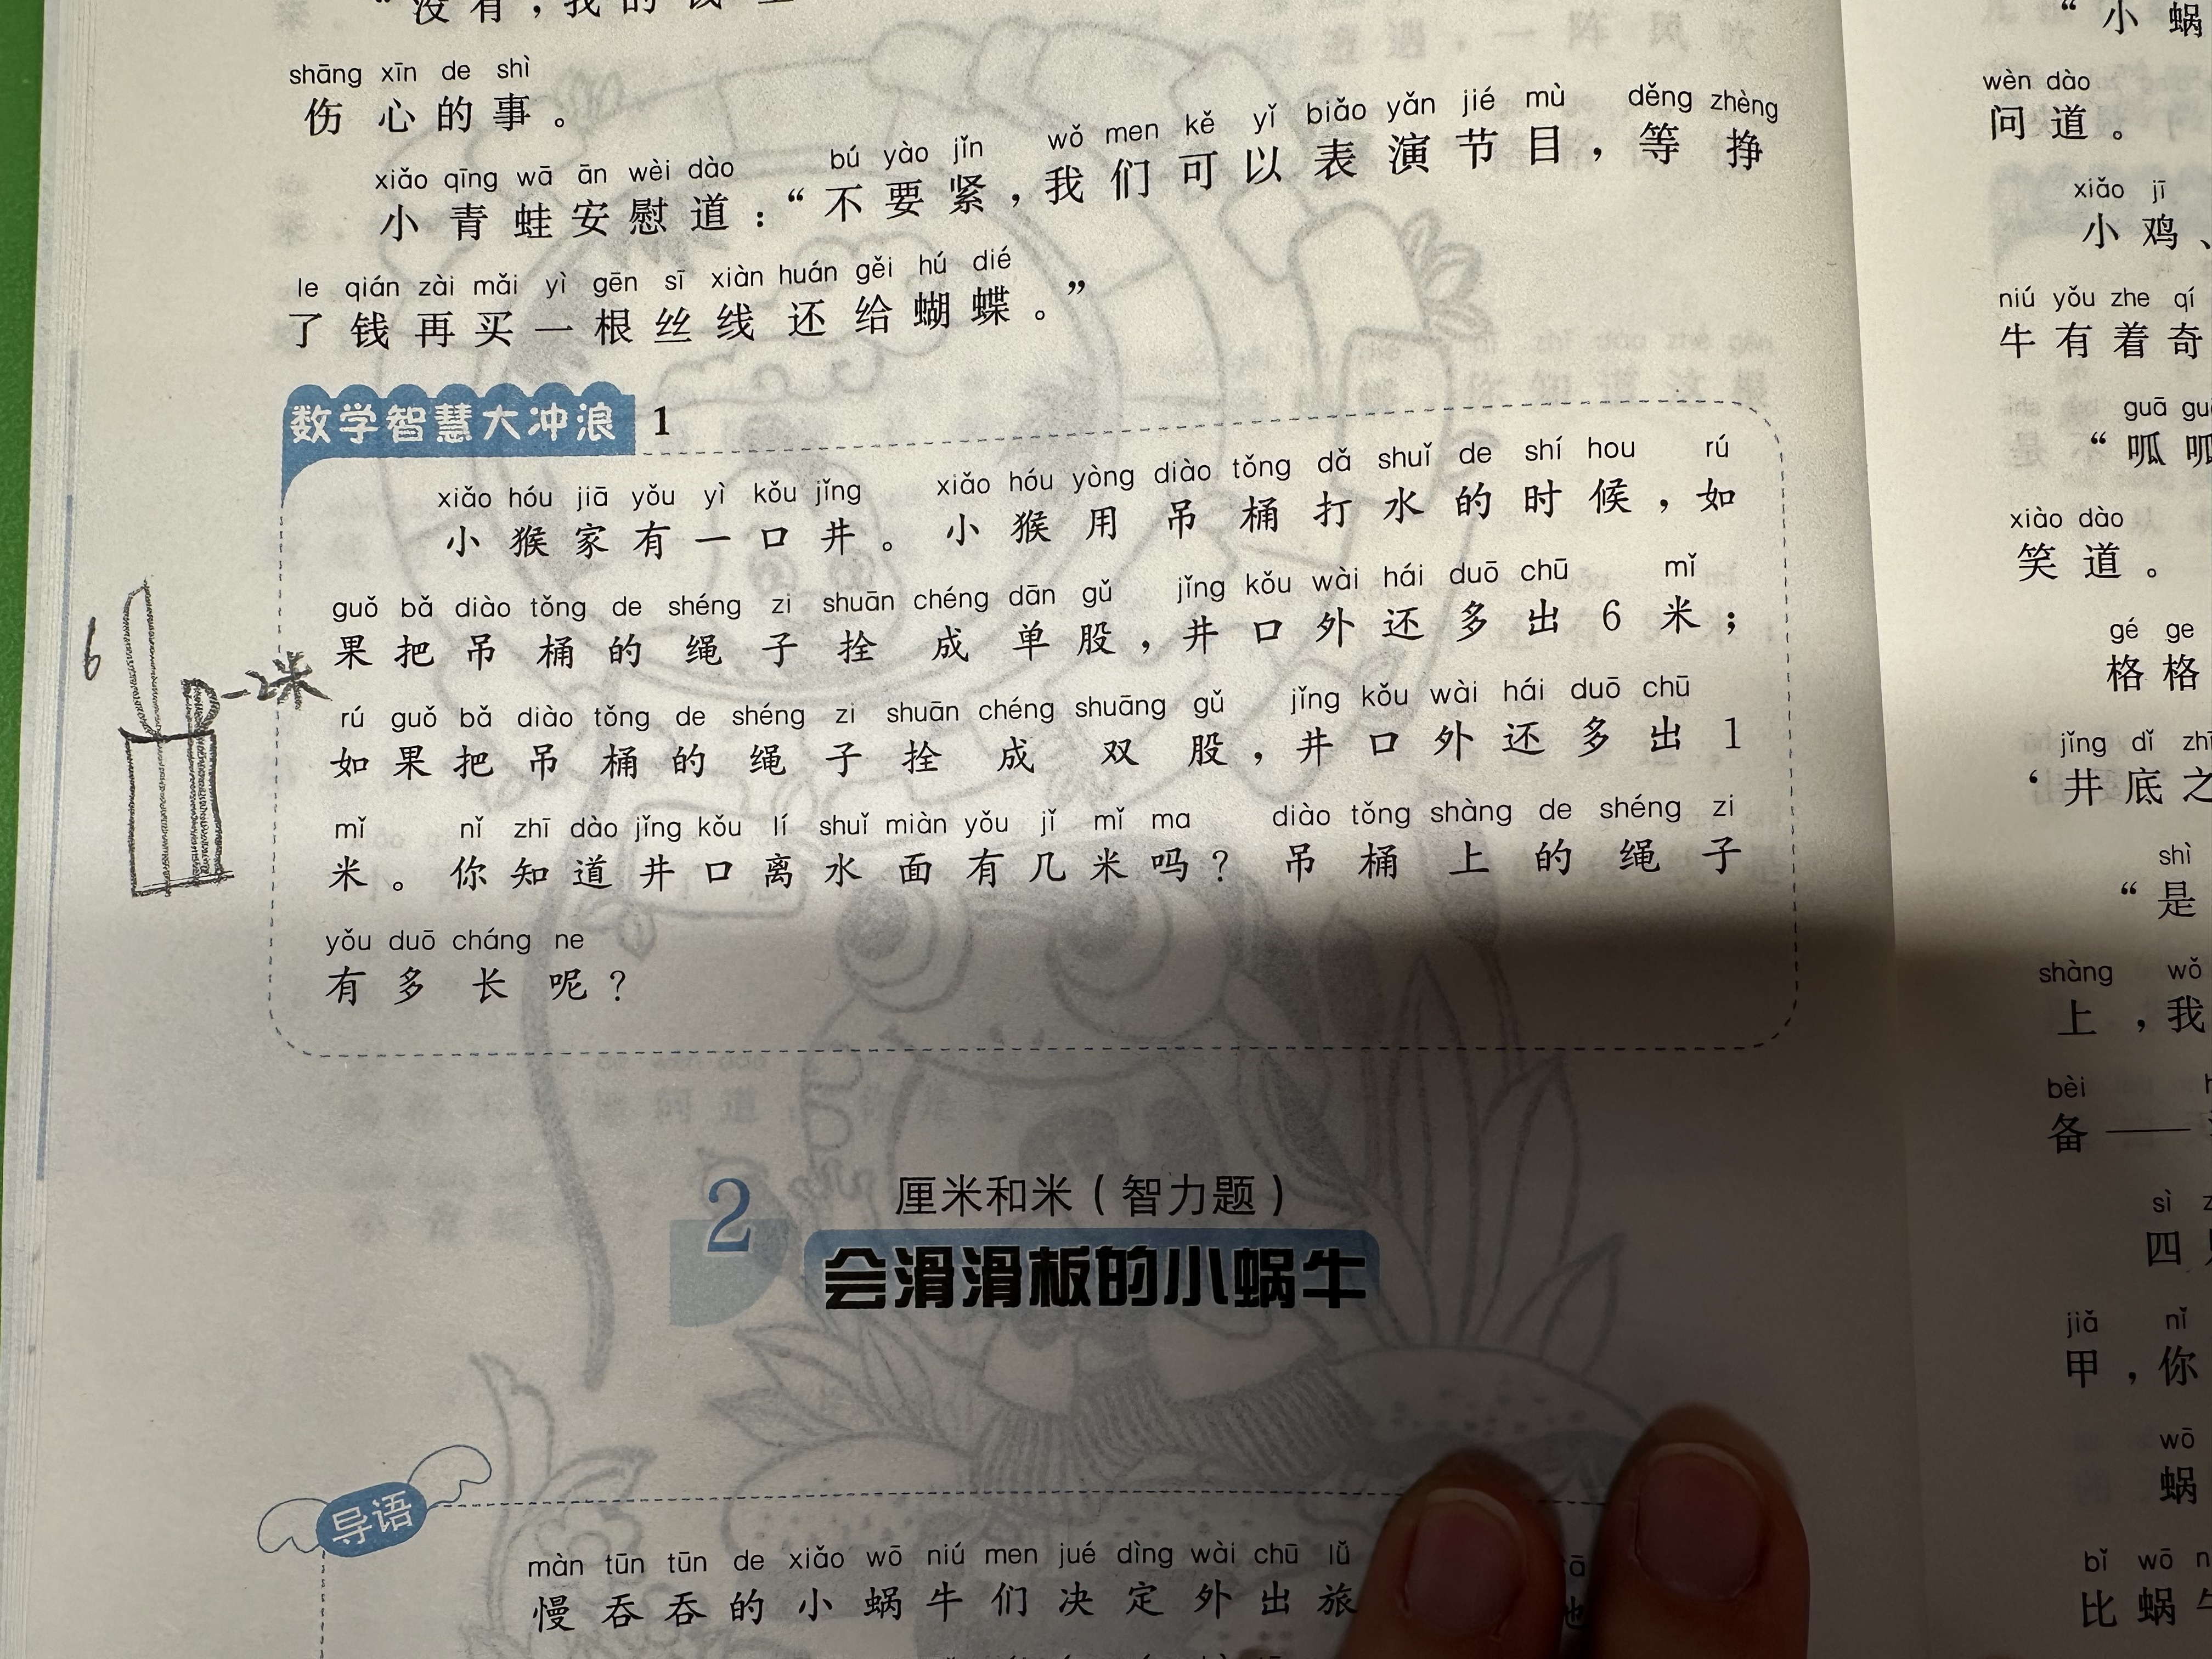 “没有，我的钱
shāng xīn de shì
伤心的事。
xiǎo qīng wā ān wèi dào bú yào jǐn wǒ men kě yǐ biǎo yǎn jié mù děng zhèng
小青蛙安慰道：“不要紧，我们可以表演节目，等挣
le qián zài mǎi yì gēn sī xiàn huán gěi hú dié
了钱再买一根丝线还给蝴蝶。”
数学智慧大冲浪 1
xiǎo hóu jiā yǒu yì kǒu jǐng xiǎo hóu yòng diào tǒng dǎ shuǐ de shí hou rú
小猴家有一口井。小猴用吊桶打水的时候，如
guǒ bǎ diào tǒng de shéng zi shuān chéng dān gǔ jǐng kǒu wài hái duō chū mǐ
果把吊桶的绳子拴成单股，井口外还多出6米；
rú guǒ bǎ diào tǒng de shéng zi shuān chéng shuāng gǔ jǐng kǒu wài hái duō chū
如果把吊桶的绳子拴成双股，井口外还多出1
mǐ nǐ zhī dào jǐng kǒu lí shuǐ miàn yǒu jǐ mǐ ma diào tǒng shàng de shéng zi
米。你知道井口离水面有几米吗？吊桶上的绳子
yǒu duō cháng ne
有多长呢？
6
2米
2
厘米和米（智力题）
会滑滑板的小蜗牛
导语
màn tūn tūn de xiǎo wō niú men jué dìng wài chū lǚ
慢吞吞的小蜗牛们决定外出旅
“小蜗
wèn dào
问道。
xiǎo jī
小鸡、
niú yǒu zhe qí
牛有着奇
guā
“呱呱
xiào dào
笑道。
gé ge
格格
jǐng dǐ
‘井底之
shì
“是
shàng wǒ
上，我
bèi
备——
sì
四
jiǎ nǐ
甲，你
wō
蜗
bǐ wō
比蜗